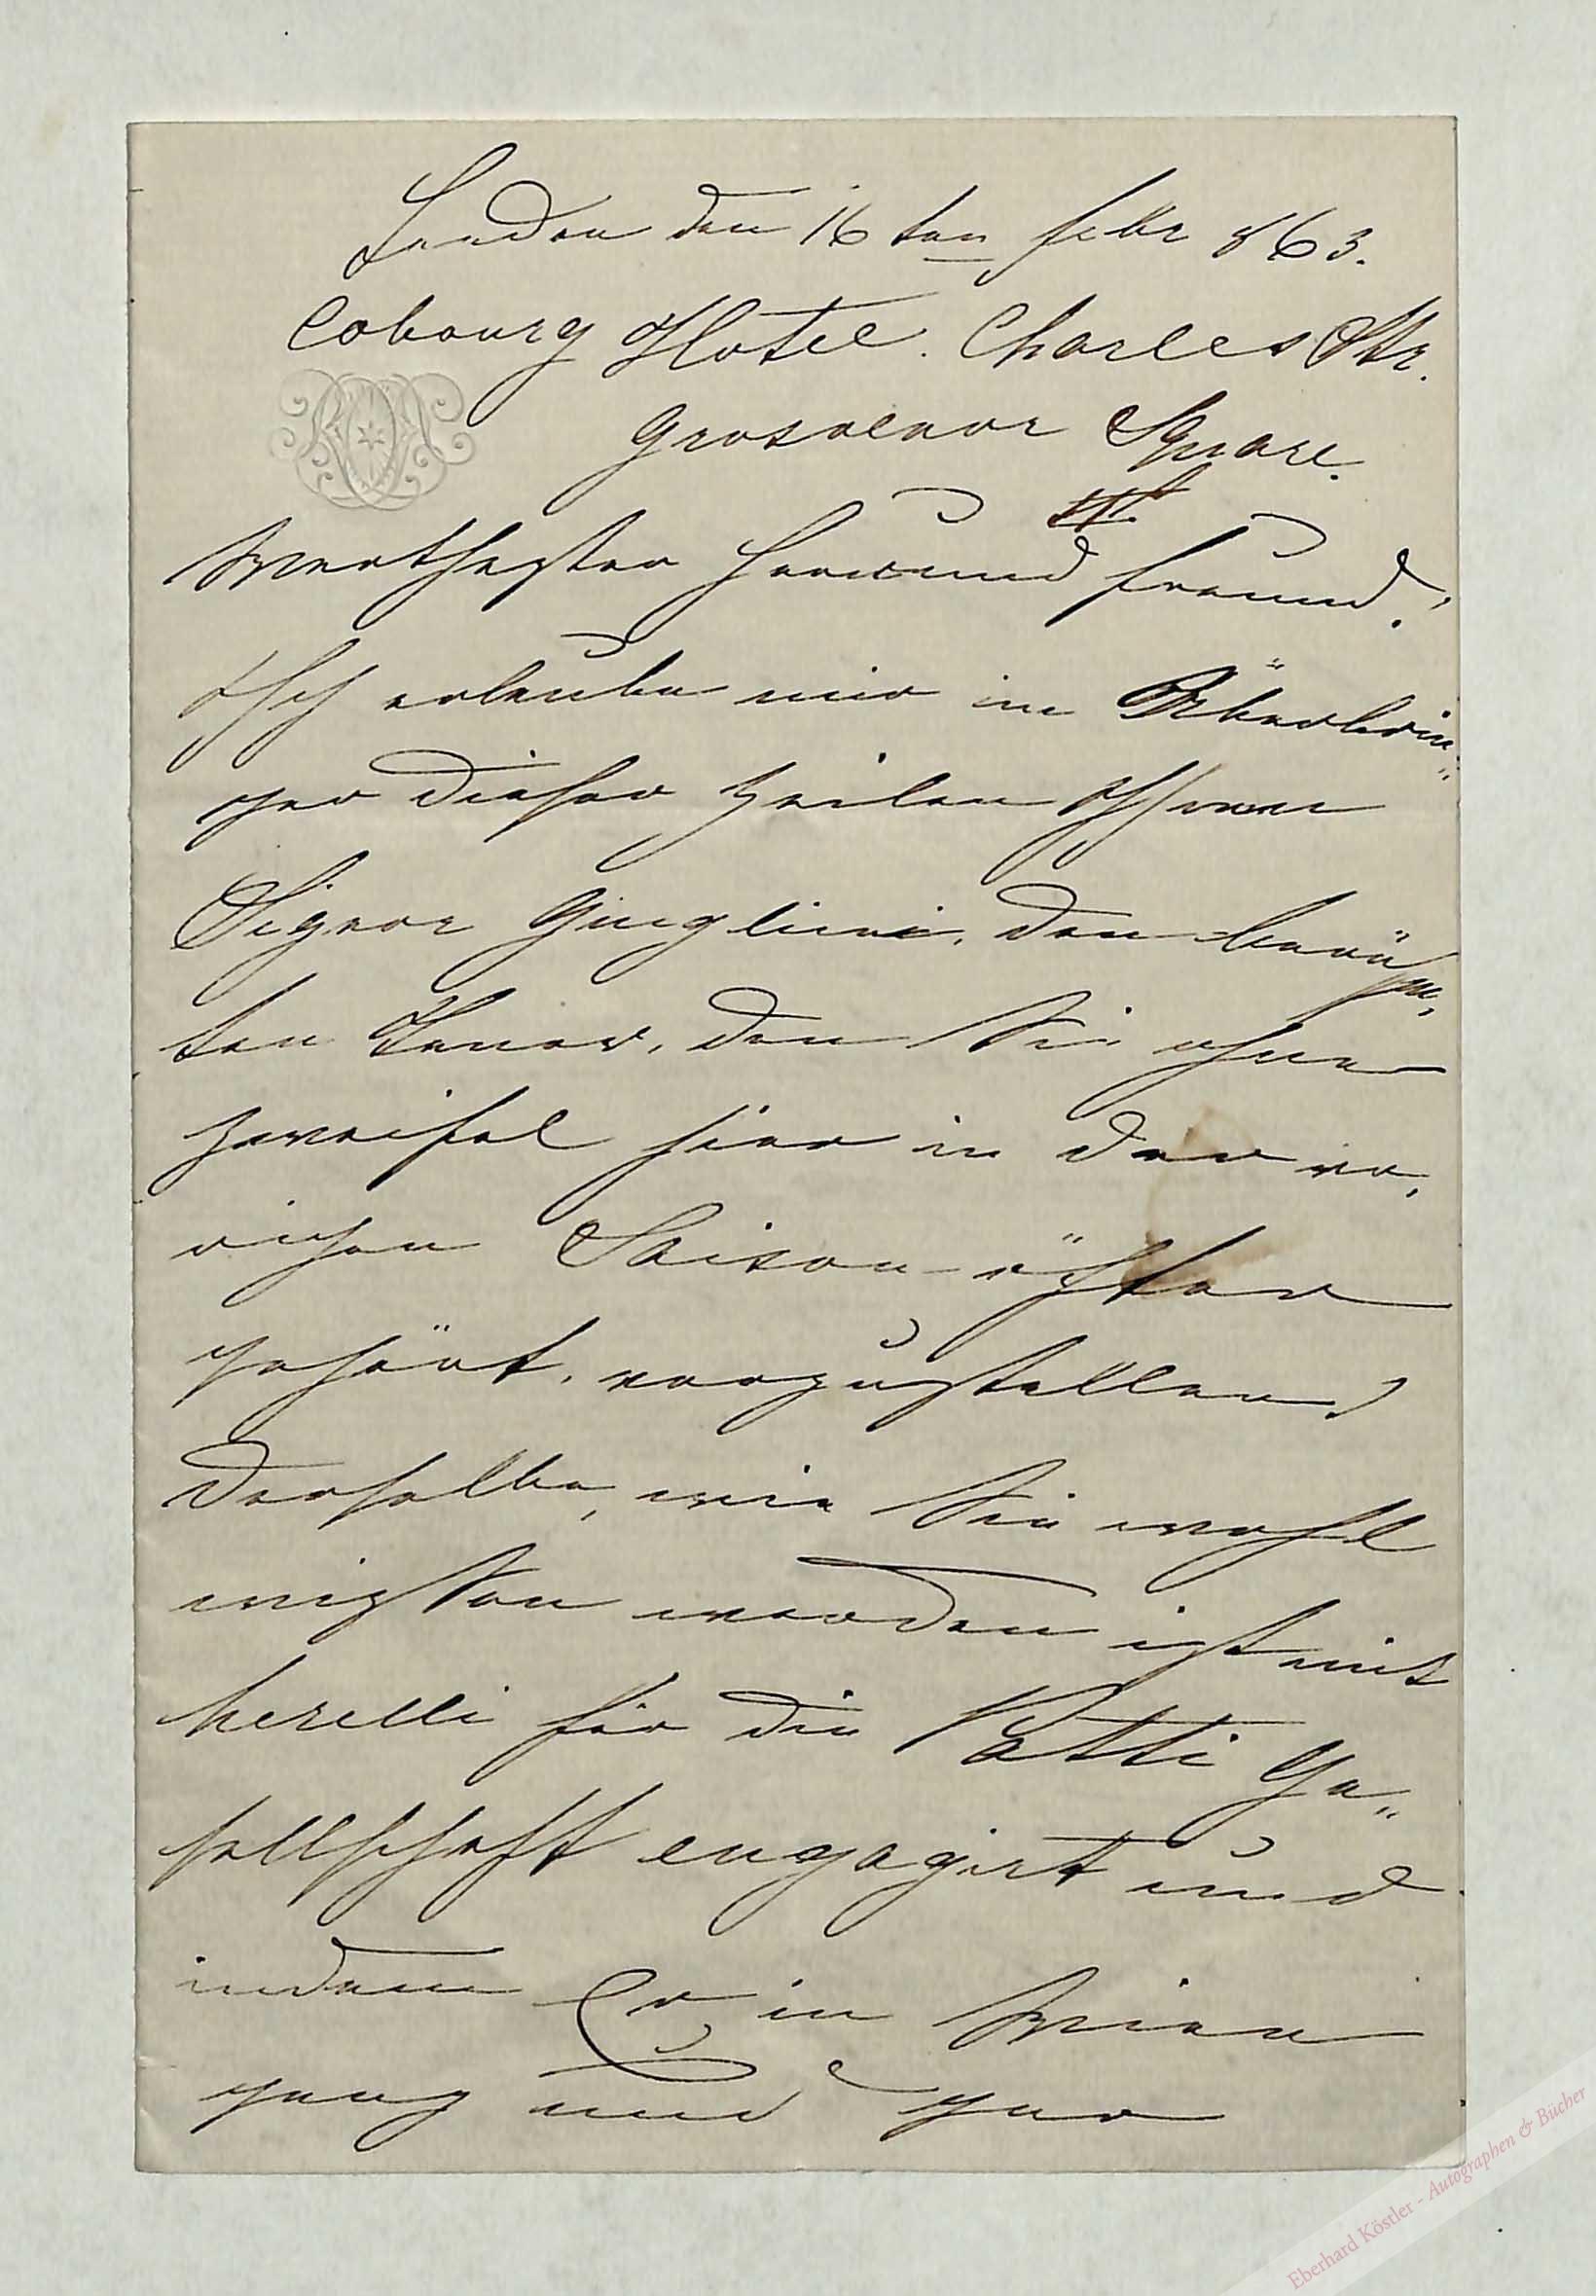 London den 16ten Febr 863.
Cobourg Hotel. Charles Str.
Grosvenor Square.
Werthester Herr und Freund!
Ich erlaube mir im Überbrin-
ger dieser Zeilen Ihnen
Signor Giuglini, den berühm-
ten Tenor, den Sie ohne
Zweifel hier in der vo-
rigen Saison öfter
gehört, vorzustellen.
Derselbe, wie Sie wohl
wissten werden ist mit
Merelli für die Patti Ge-
sellschaft engagirt und
indem Er in Wien
ganz und gar
Eberhard Köstler - Autographen & Bücher